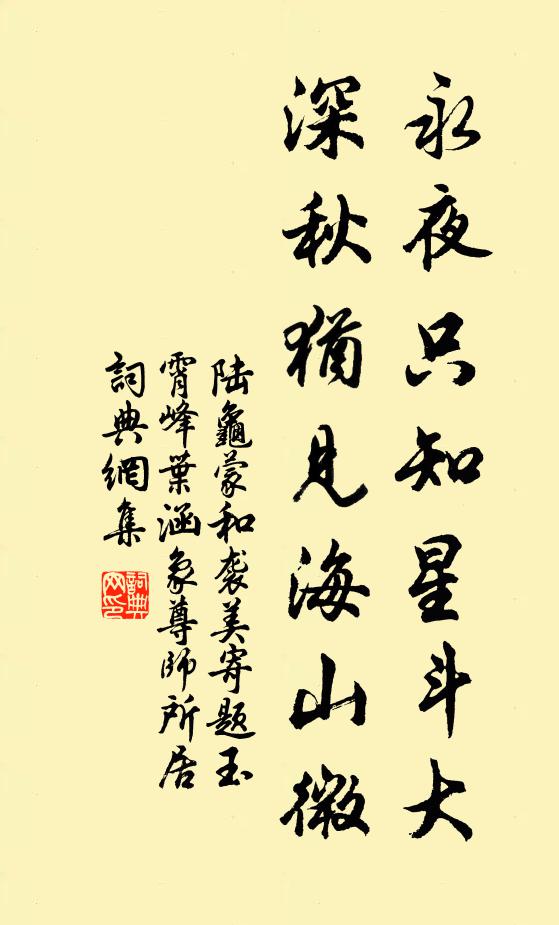 永夜只知星斗大
深秋猶見海山微
陆龜蒙和袭美寄题玉
霄峰葉涵象尊師所居
詞典網集
詞典網印